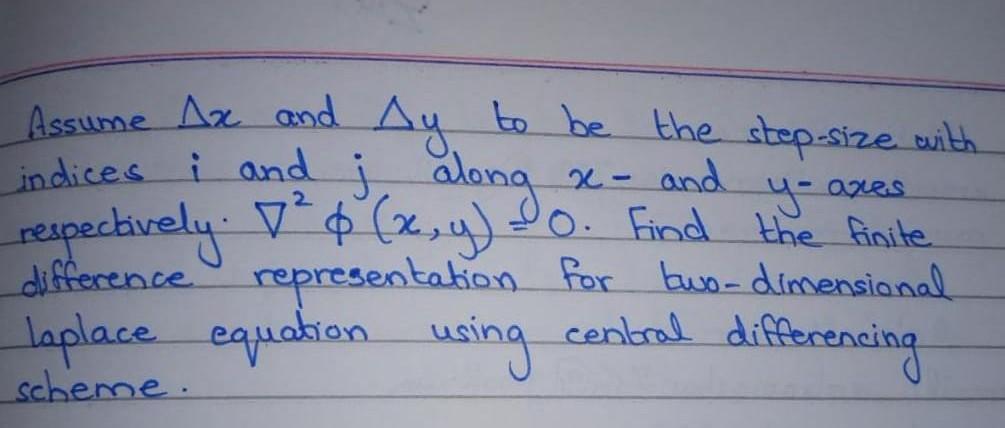 Assume Δx and Δy to be the step-size with
indices i and j along x- and y-axes
respectively. ∇² ϕ (x,y) = 0. Find the finite
difference representation for two-dimensional
laplace equation using central differencing
scheme.